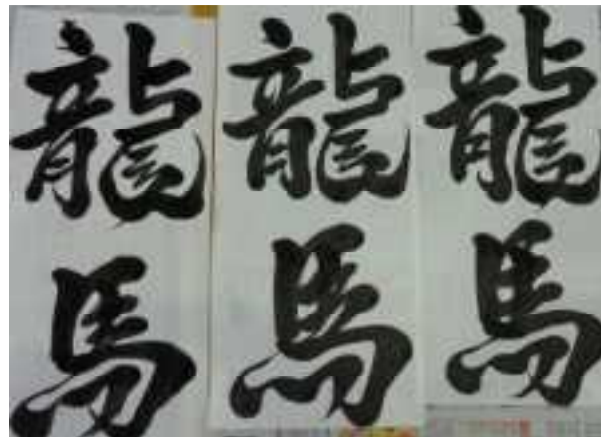 龍馬
龍馬
龍馬